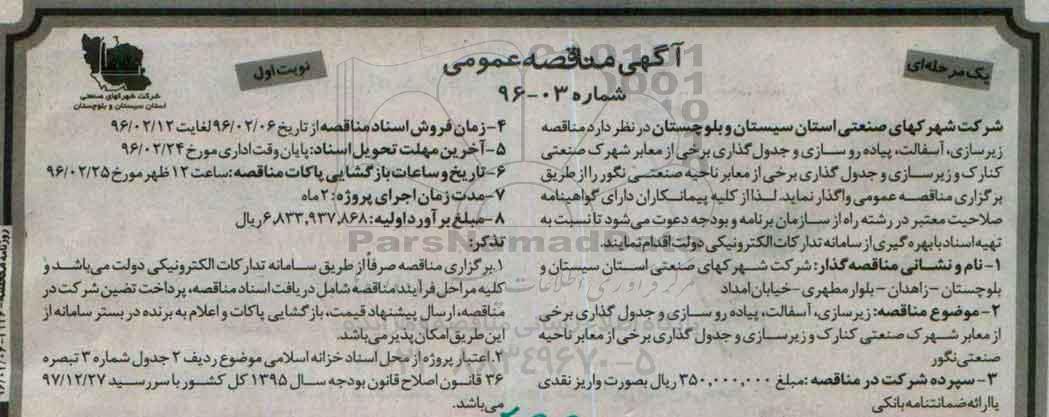 آگهی مناقصه عمومی
شماره ۰۳-۹۶
یک مرحله‌ای
نوبت اول
شرکت شهرکهای صنعتی
استان سیستان و بلوچستان
شرکت شهرکهای صنعتی استان سیستان و بلوچستان در نظر دارد مناقصه
زیرسازی، آسفالت، پیاده رو سازی و جدول گذاری برخی از معابر شهرک صنعتی
کنارک و زیرسازی و جدول گذاری برخی از معابر ناحیه صنعتی نگور را از طریق
برگزاری مناقصه عمومی واگذار نماید. لذا از کلیه پیمانکاران دارای گواهینامه
صلاحیت معتبر در رشته راه از سازمان برنامه و بودجه دعوت می‌شود تا نسبت به
تهیه اسناد با بهره گیری از سامانه تدارکات الکترونیکی دولت اقدام نمایند.
۱- نام و نشانی مناقصه گذار: شرکت شهرکهای صنعتی استان سیستان و
بلوچستان - زاهدان - بلوار مطهری - خیابان امداد
۲- موضوع مناقصه: زیرسازی، آسفالت، پیاده رو سازی و جدول گذاری برخی
از معابر شهرک صنعتی کنارک و زیرسازی و جدول گذاری برخی از معابر ناحیه
صنعتی نگور
۳- سپرده شرکت در مناقصه: مبلغ ۳۵۰,۰۰۰,۰۰۰ ریال بصورت واریز نقدی
یا ارائه ضمانتنامه بانکی
۴- زمان فروش اسناد مناقصه از تاریخ ۹۶/۰۲/۰۶ لغایت ۹۶/۰۲/۱۲
۵- آخرین مهلت تحویل اسناد: پایان وقت اداری مورخ ۹۶/۰۲/۲۴
۶- تاریخ و ساعات بازگشایی پاکات مناقصه: ساعت ۱۲ ظهر مورخ ۹۶/۰۲/۲۵
۷- مدت زمان اجرای پروژه: ۲ ماه
۸- مبلغ برآورد اولیه: ۶,۸۳۳,۹۳۷,۸۶۸ ریال
تذکر:
۱. برگزاری مناقصه صرفاً از طریق سامانه تدارکات الکترونیکی دولت می‌باشد و
کلیه مراحل فرآیند مناقصه شامل دریافت اسناد مناقصه، پرداخت تضمین شرکت در
مناقصه، ارسال پیشنهاد قیمت، بازگشایی پاکات و اعلام به برنده در بستر سامانه از
این طریق امکان پذیر می‌باشد.
۲. اعتبار پروژه از محل اسناد خزانه اسلامی موضوع ردیف ۲ جدول شماره ۳ تبصره
۳۶ قانون اصلاح قانون بودجه سال ۱۳۹۵ کل کشور با سررسید ۹۷/۱۲/۲۷
می‌باشد.
ParsNamadData